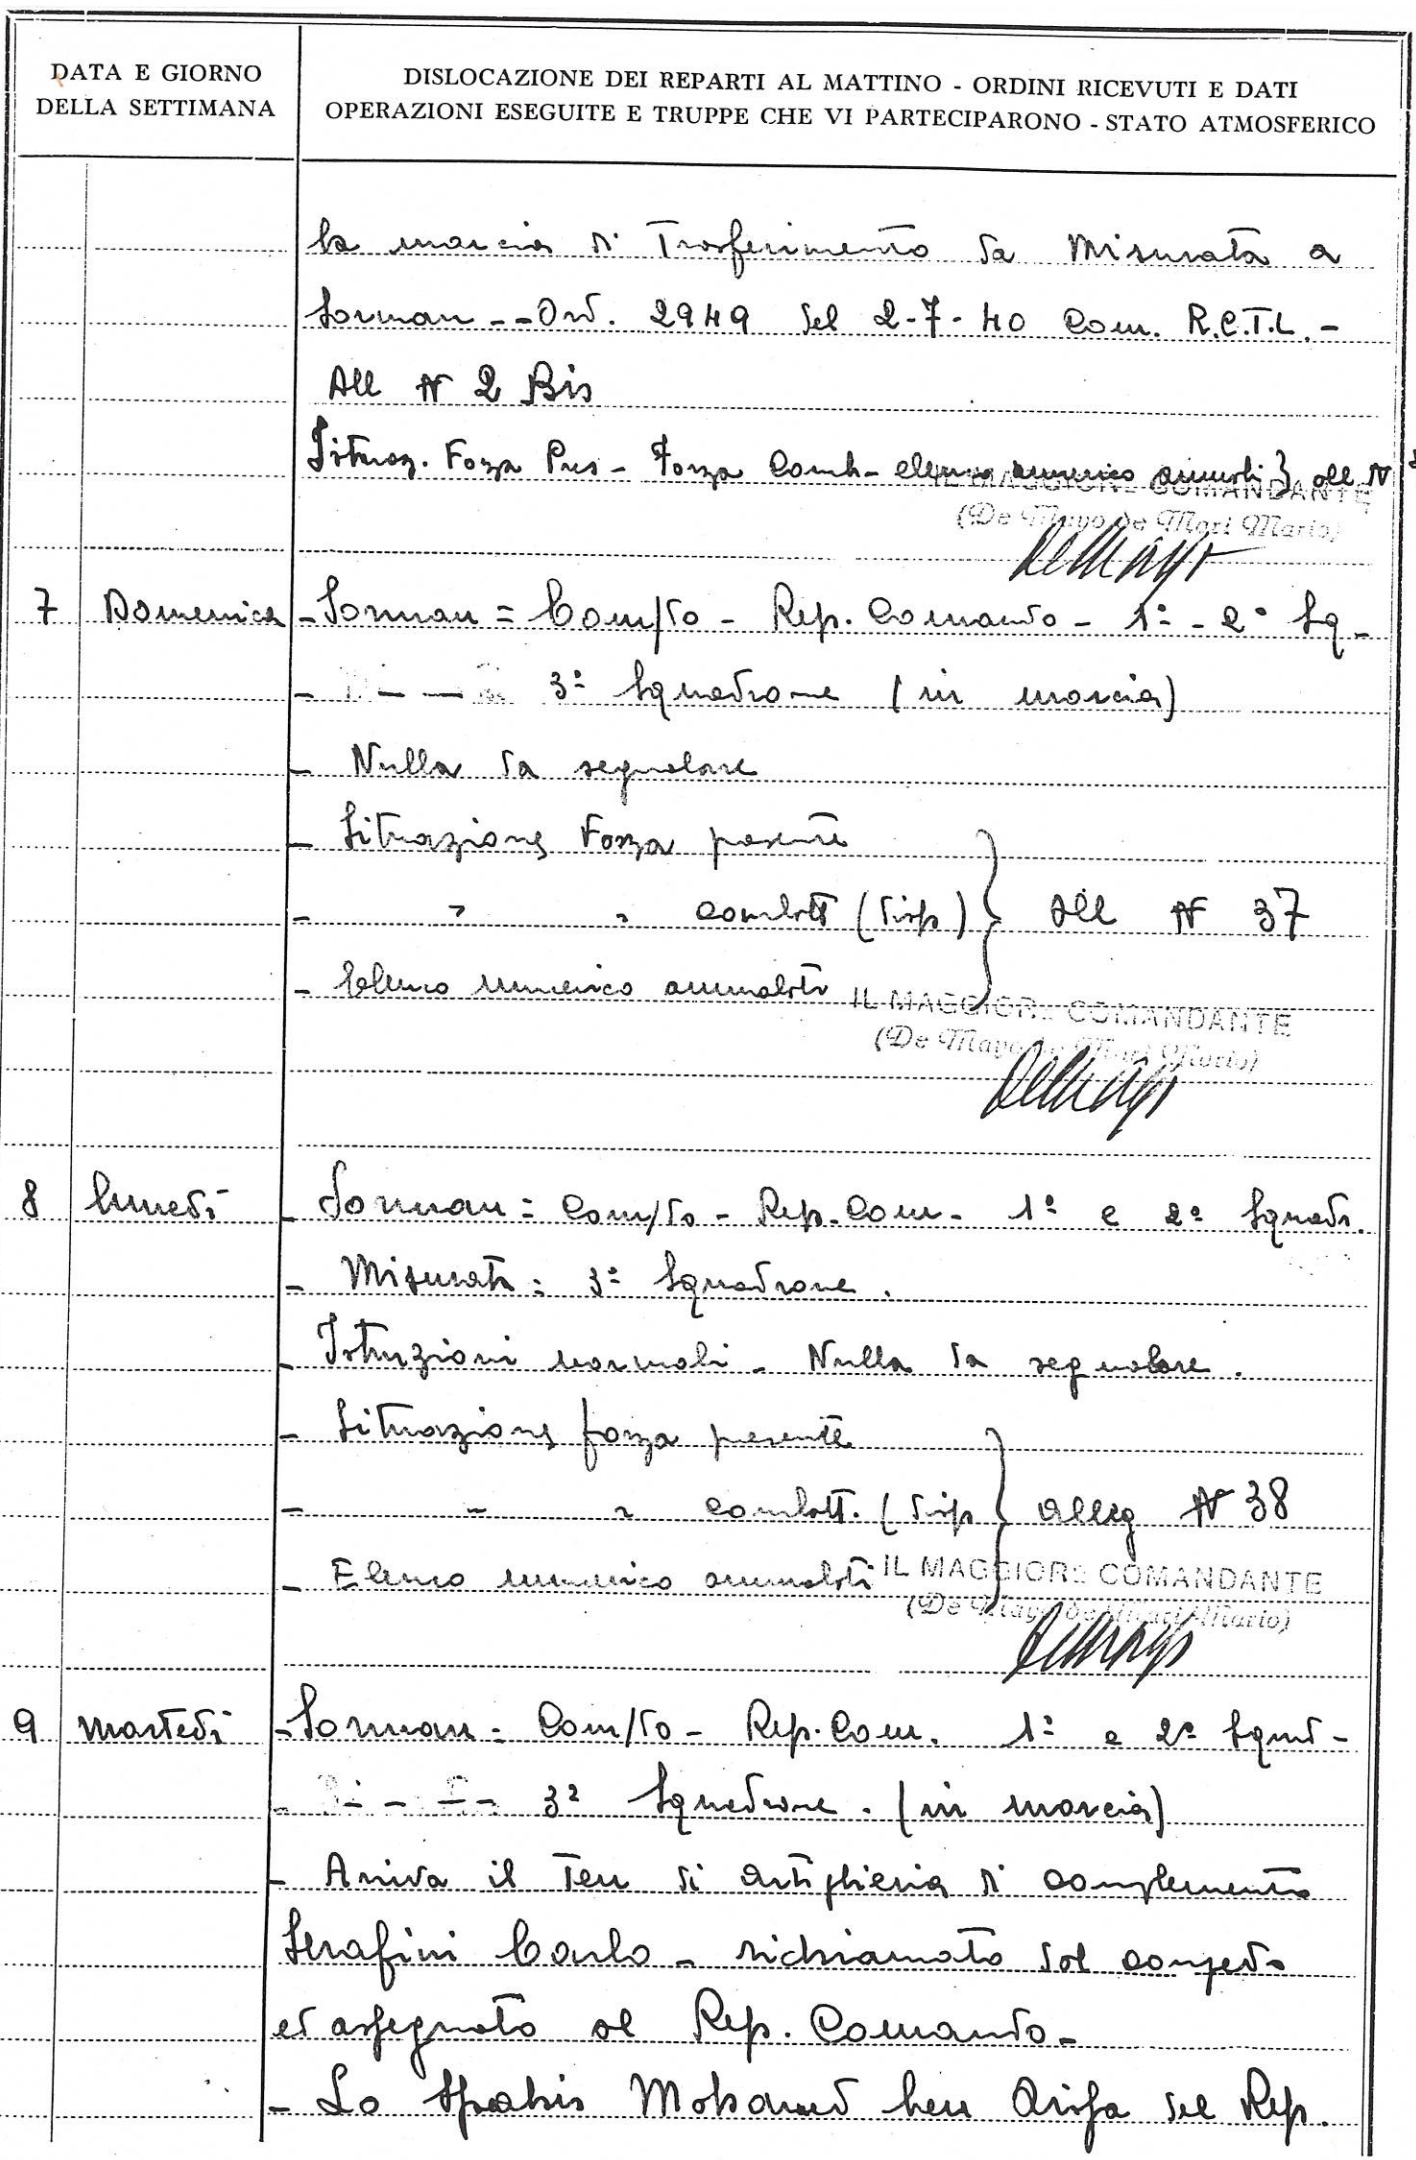 DATA E GIORNO
DELLA SETTIMANA
DISLOCAZIONE DEI REPARTI AL MATTINO - ORDINI RICEVUTI E DATI
OPERAZIONI ESEGUITE E TRUPPE CHE VI PARTECIPARONO - STATO ATMOSFERICO
la marcia di Trasferimento da Misurata a
Sorman -- Ord. 2949 del 2-7-40 Com. R.C.T.L. -
All N 2 Bis
Forza Pres - Forza Comb - elenco numerico ammalati } all N
IL MAGGIORE COMANDANTE
(De Mayo de Mari Mario)
7 Domenica - Sorman = Com/do - Rep. Comando - 1° - 2° Sq -
- 3° Squadrone (in marcia)
- Nulla da segnalare
- Situazione Forza presente
- " " combatt (disp) } All N 37
- Elenco numerico ammalati
IL MAGGIORE COMANDANTE
(De Mayo de Mari Mario)
8 lunedì - Sorman = Com/do - Rep. Com - 1° e 2° Squadr.
- Misurata: 3° Squadrone.
- Istruzioni normali - Nulla da segnalare.
- Situazione forza presente
- " " combatt. (disp } Alleg N 38
- Elenco numerico ammalati
IL MAGGIORE COMANDANTE
(De Mayo de Mari Mario)
9 martedì - Sorman = Com/do - Rep. Com. 1° e 2° Squd -
- 3° Squadrone. (in marcia)
- Arriva il Ten di Artiglieria di complemento
Serafini Carlo - richiamato dal congedo
ed assegnato al Rep. Comando -
- Lo Spahis Mohamed ben del Rep.